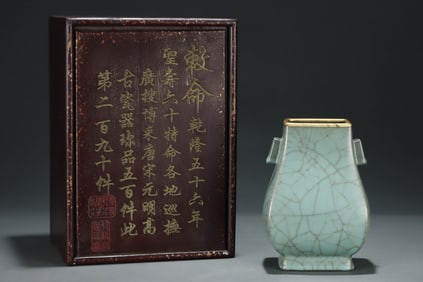 敕命
乾隆五十六年
聖壽六十特命各地巡撫
廣搜博采唐宋元明高
古瓷器珍品五百件此
第二百九十件